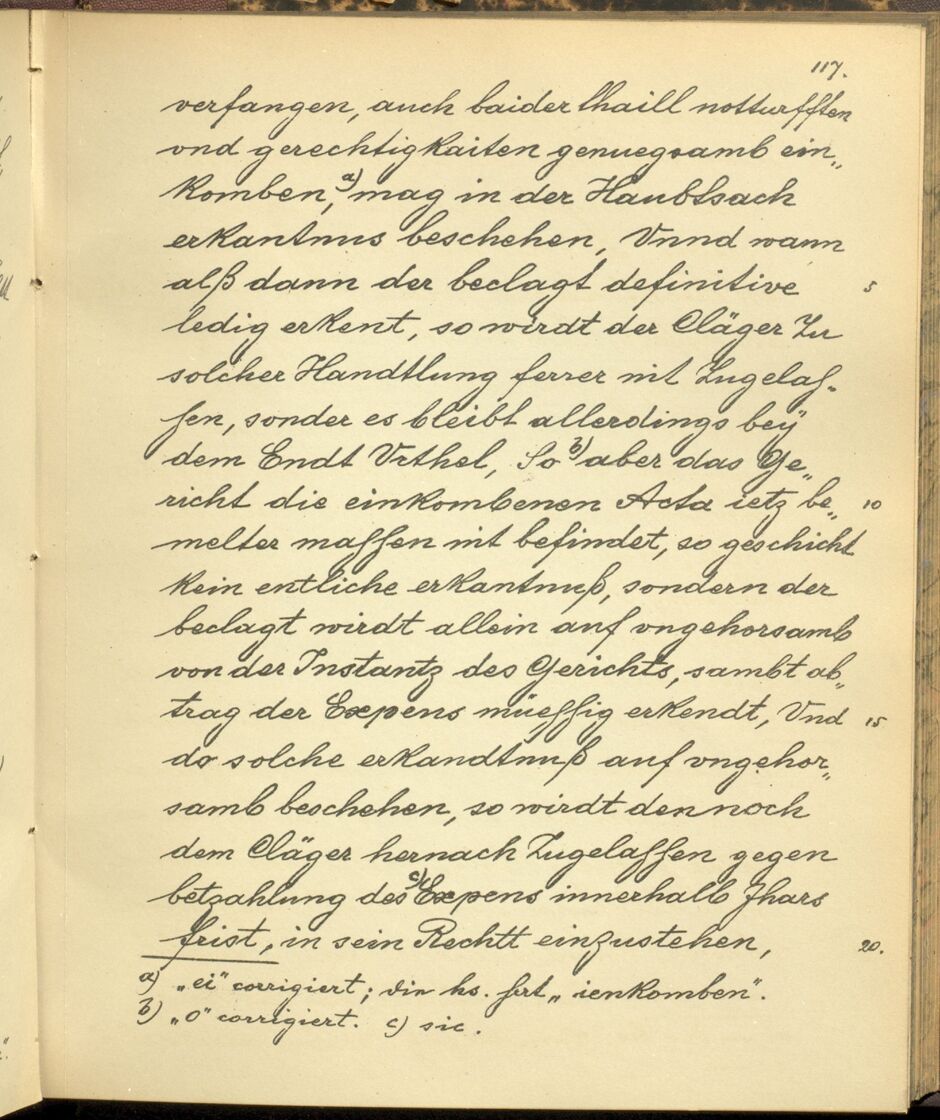 117.
verfangen, auch baider thaill notturfften
vnd gerechtigkaiten genuegsamb ein„
komben,a) mag in der Haubtsach
erkantnus beschehen, Vnnd wann
alß dann der beclagt definitive 5
ledig erkent, so wirdt der Cläger Zu
solcher Handtlung ferrer nit Zugelaſ„
ſen, sonder es bleibt allerdings beÿ
dem Endt Vrthel, Sob) aber das Ge„
richt die einkombenen Acta ietz be„ 10
melter maſſen nit befindet, so geschicht
kein entliche erkantnuß, sondern der
beclagt wirdt allein auf vngehorsamb
von der Instantz des Gerichts, sambt ab„
trag der Expens müeſſig erkendt, Vnd 15
do solche erkandtnuß auf vngehor„
samb beschehen, so wirdt den noch
dem Cläger hernach Zugelaſſen gegen
betzahlung desc) Expens innerhalb Jhars
frist, in sein Rechtt einzustehen, 20.
a) „ei“ corrigiert; die hs. hat „ienkomben“.
b) „o“ corrigiert. c) sic.